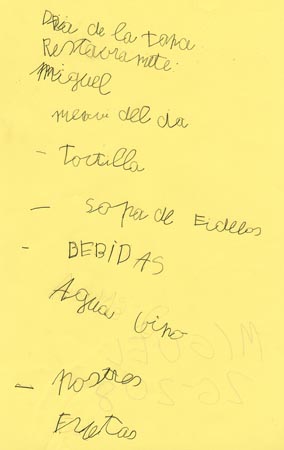 Dia de la tapa
Restauranete
Miguel
menu del dia
- Tortilla
- sopa de Eidellos
- BEBIDAS
Agua Vino
- postres
Frutas
MIGUEL